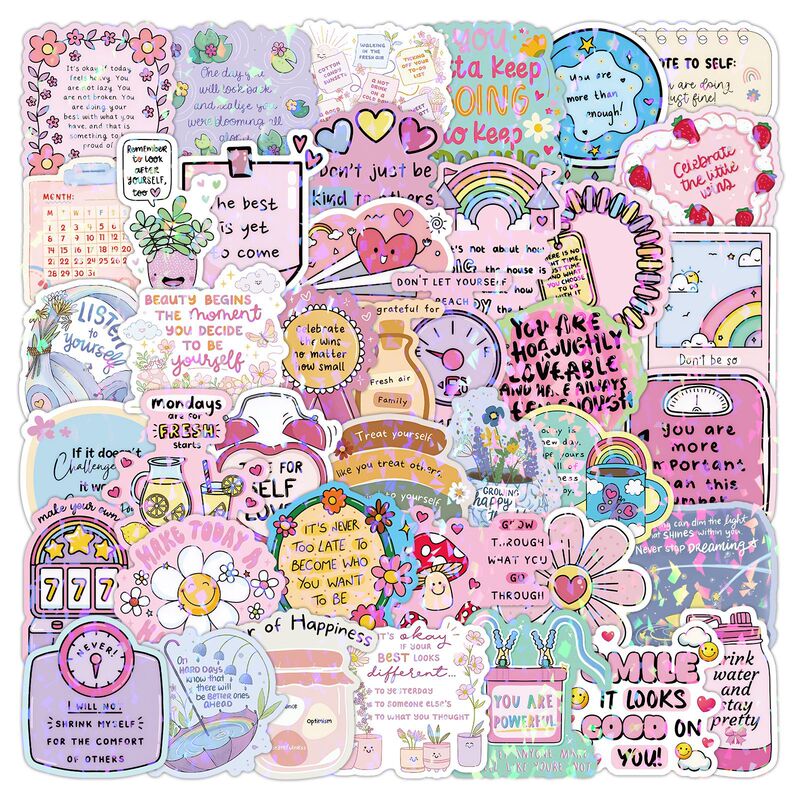 It's okay if today
feels heavy. You
are not lazy. You
are not broken. You
are doing your
best with what you
have, and that is
something to be
proud of
One day you
will look back
and realize you
were blooming all
along
COTTON
CANDY
SUNSETS
WALKING
IN THE
FRESH AIR
TICKING
OFF YOUR
TO-DO
LIST
A HOT
DRINK
ON A
COLD DAY
YOU
tta keep
GOING
to keep
You are
more than
enough!
OTE TO SELF:
You are doing
just fine!
Remember
to look
after
YOURSELF,
too
Don't just be
kind to others
Celebrate
the little
wins
MONTH:
M T W T F S
1 2 3 4 5 6
8 9 10 11 12 13
14
21
28 29 30 31
The best
is yet
to come
't's not about how
BIG the house is
HERE IS NO
GHT TIME,
JUST TIME
AND WHAT
YOU CHOOSE
TO DO
WITH IT
DON'T LET YOURSELF
REACH
the
LISTEN
to
yourself
BEAUTY BEGINS
THE moment
YOU DECIDE
TO BE
yourself
Celebrate
the wins
no matter
how small
grateful for
Fresh air
Family
E
F
YOU ARE
THOROUGHLY
LOVEABLE
AND HAVE ALWAYS
BEEN ENOUGH
Don't be so
Mondays
are for
FRESH
starts
If it doesn't
Challenge
it w
TIME FOR
SELF
LOVE
Treat yourself
like you treat others.
to yourself
GROWING
happy
day is
new day.
You are
more
important
than this
number
make your own
7 7 7
MAKE TODAY A
IT'S NEVER
TOO LATE TO
BECOME WHO
YOU WANT
TO BE
GROW
THROUGH
WHAT YOU
GO
THROUGH
can dim the light
that SHINES within you
Never stop DREAMING
NEVER!
I WILL NOT
SHRINK MYSELF
FOR THE COMFORT
OF OTHERS
On
HARD DAYS
know that
there will
be BETTER ONES
AHEAD
r of Happiness
Optimism
IT'S okay
IF YOUR
BEST LOOKS
different...
TO YESTERDAY
TO SOMEONE ELSE'S
TO WHAT YOU THOUGHT
YOU ARE
POWERFUL
ANYONE MAKE
FEEL LIKE YOU'RE NOT
SMILE
IT LOOKS
GOOD ON
YOU!
Drink
water
and
stay
pretty